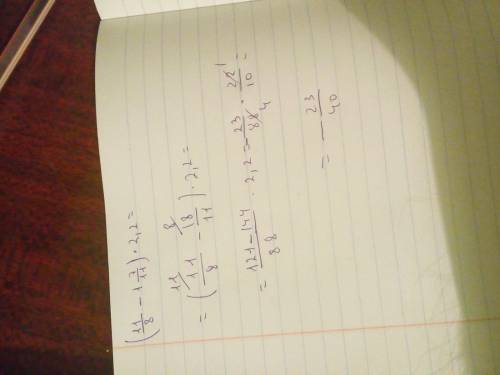 (11/8 - 1 7/11) · 2,2 =
= (11/8 - 18/11) · 2,2 =
11 8
= 121-144/88 · 2,2 = -23/88 · 22/10 =
4 1
= -23/40